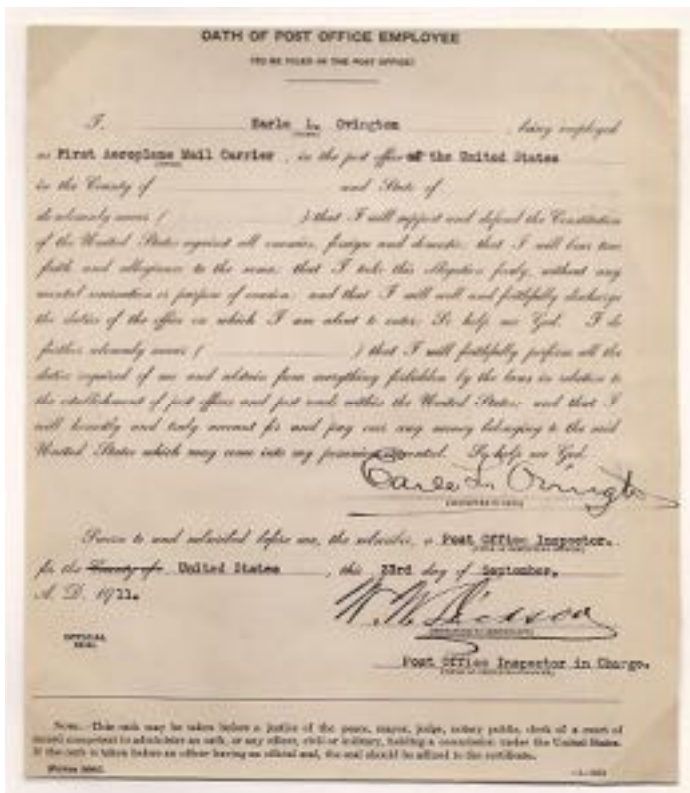 OATH OF POST OFFICE EMPLOYEE
(TO BE FILED IN THE POST OFFICE)
I, Earle L. Ovington, being employed
as First Aeroplane Mail Carrier, in the post office of the United States
in the County of and State of
do solemnly swear ( ) that I will support and defend the Constitution
of the United States against all enemies, foreign and domestic; that I will bear true
faith and allegiance to the same; that I take this obligation freely, without any
mental reservation or purpose of evasion; and that I will well and faithfully discharge
the duties of the office on which I am about to enter: So help me God. I do
further solemnly swear ( ) that I will faithfully perform all the
duties required of me and abstain from everything forbidden by the laws in relation to
the establishment of post offices and post roads within the United States; and that I
will honestly and truly account for and pay over any money belonging to the said
United States which may come into my possession or control. So help me God.
Earle L. Ovington
Sworn to and subscribed before me, the subscriber, a Post Office Inspector.
for the County of United States, this 23rd day of September.
A. D. 1911.
OFFICIAL
SEAL
Post Office Inspector in Charge.
NOTE.—This oath may be taken before a justice of the peace, mayor, judge, notary public, clerk of a court of
record competent to administer an oath, or any officer, civil or military, holding a commission under the United States.
If the oath is taken before an officer having an official seal, the seal should be affixed to the certificate.